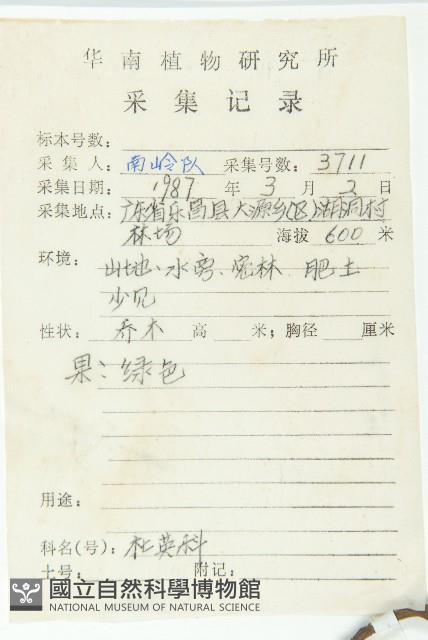 华南植物研究所
采集记录
标本号数:
采集人: 南岭队 采集号数: 3711
采集日期: 1987 年 3 月 2 日
采集地点: 广东省乐昌县大源乡(区)湖洞村
林场 海拔 600 米
环境: 山地、水旁、密林 肥土
少见
性状: 乔木 高 米; 胸径 厘米
果: 绿色
用途:
科名(号): 杜英科
土号: 附记:
國立自然科學博物館
NATIONAL MUSEUM OF NATURAL SCIENCE